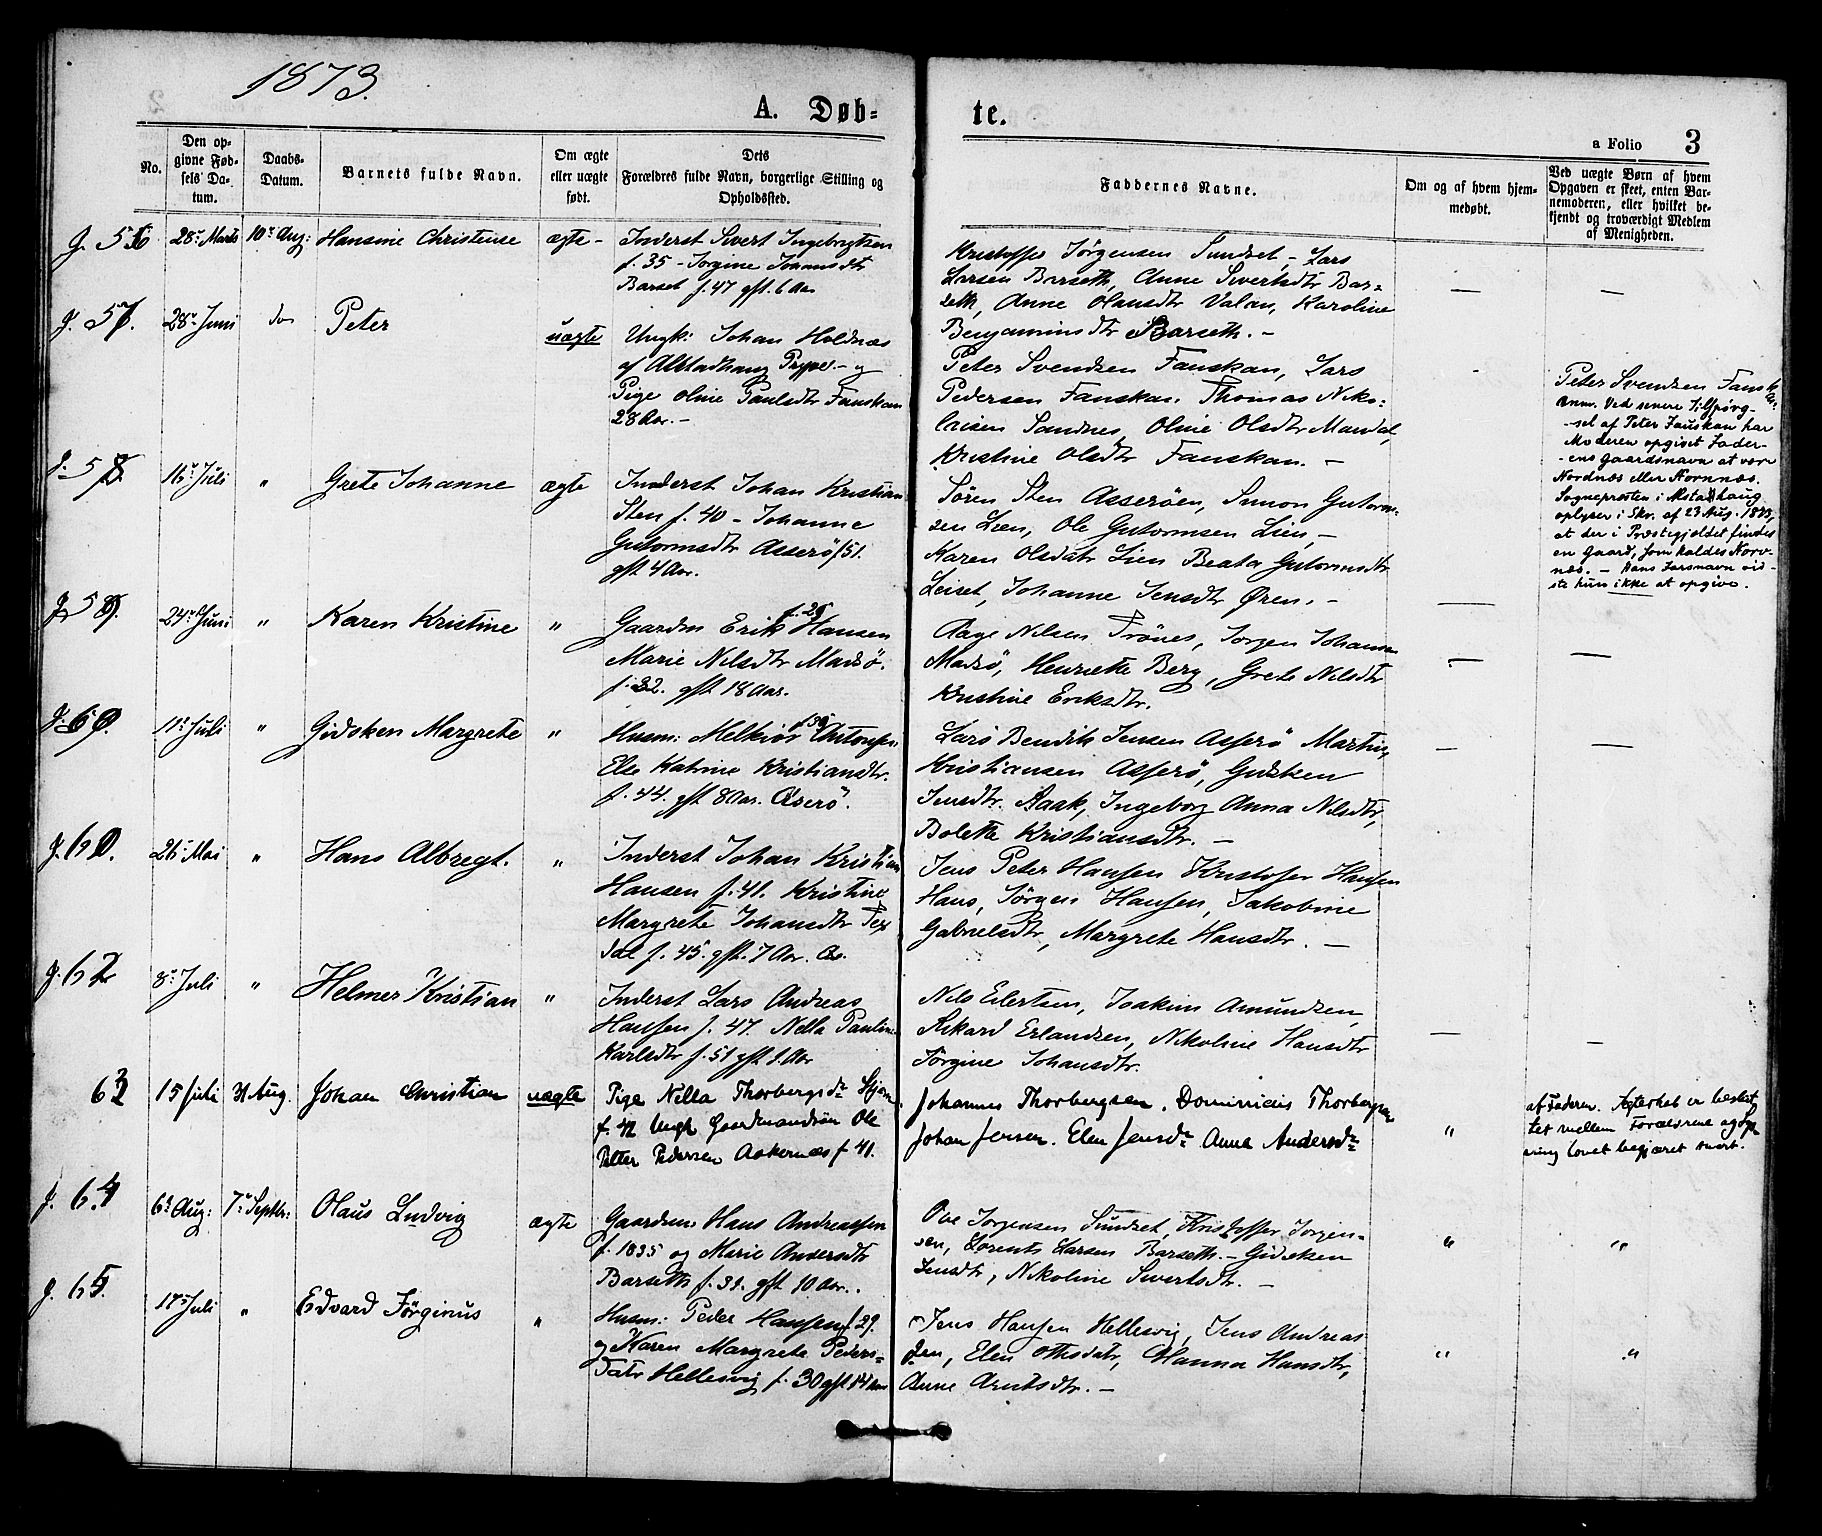 1873.
A. Døb-
te.
a Folio 3
No.
Den op-
givne Fød-
sels Da-
tum.
Daabs-
Datum.
Barnets fulde Navn.
Om ægte
eller uægte
født.
Dets
Forældres fulde Navn, borgerlige Stilling og
Opholdssted.
Faddernes Navne.
Om og af hvem hjem-
medøbt.
Ved uægte Børn af hvem
Opgaven er skeet, enten Bar-
nemoderen, eller hvilket be-
kjendt og troværdigt Medlem
af Menigheden.
28de Marts 10de Aug: Hansine Christense ægte- Inderst Sivert Ingebrigtsen
f. 35 - Jørgine Johansdtr
Barset f. 47 gft. 6 Aar
Kristoffer Jørgensen Sundset, Lars
Larsen Barseth, Anne Sivertsdtr Bar-
seth, Anne Olausdtr Valan, Karoline
Benjaminsdtr Barseth. -
57. 28de Juni do Peter uægte Ungk: Johan Holdnæs
af Alstadhaug Prgjæld - og
Pige Oline Paulsdtr Fauskan
28 Aar. -
Peter Svendsen Fauskan, Lars
Pedersen Fauskan. Thomas Niko-
laisen Sandnes, Oline Olsdtr Mardal,
Kristine Olsdtr Fauskan. -
Peter Svendsen Fausk
Anm. Ved senere Tilspørg-
-sel af Peter Fauskan har
Moderen opgivet Fader-
-ens Gaardsnavn at være
Nordnæs eller Nornnæs.
Sognepresten i Alstadhaug
oplyser i Skr. af 23 Aug. 1873,
at der i Præstegjeldet findes
en Gaard, som kaldes Norv-
næs. - Hans Farsnavn vid-
ste hun ikke at opgive.
58. 16de Juli " Grete Johanne ægte Inderst Johan Kristian
Sten f. 40 - Johanne
Gutormsdtr Asserø f 51.
gft 4 Aar.
Søren Sten Asserøen, Simon Gutorm-
sen Lien, Ole Gutormsen Lien, -
Karen Olsdatr Lien Beata Gutormsdtr
Leiset, Johanne Jensdtr Øren. -
59. 24de Juni " Karen Kristine " Gaardm Erik Hansen f. 29
Marie Nilsdtr Madsø.
f. 32. gft 18 Aar.
Aage Nilsen Trönes, Jørgen Johans
Madsø, Henriette Berg, Grete Nilsdtr
Kristine Eriksdtr.
60. 11te Juli " Gidsken Margrete " Husm: Melkior Antonsen
Else Katrine Kristiansdtr.
f. 44. gft 8 Aar. Asserø.
Lars Bendik Jensen Asserø Martin
Kristiansen Asserø, Gidsken
Jensdtr. Raak, Ingeborg Anna Nilsdtr,
Bolette Kristiansdtr. -
26de Mai " Hans Albregt. " Inderst Johan Kristian
Hansen f. 41. Kristine
Margrete Johansdtr Tex
dal f. 45. gft. 7 Aar.
Jens Peter Hansen Kristofer Hansen
Haus, Jørgen Hansen, Jakobine
Gabrielsdtr, Margrete Hansdtr. -
62 8de Juli " Helmer Kristian " Inderst Lars Andreas
Hansen f. 47. Nella Pauline
Karlsdtr f. 51 gft 1 Aar
Nils Eilertsen, Joakim Amundsen,
Rikard Erlandsen, Nikoline Hansdtr
Jørgine Johansdtr.
63 15 Juli 31 Aug. Johan Christian uægte Pige Nella Thorbergsdr
f. 42 Ungk Gaardmandsøn Ole
Petter Pedersen Aakernæs f 41.
Johannes Thorbergsen. Dominicus Thorbergsen
Johan Jensen. Elen Jensdr Anne Andersdr "
af Faderen. Ægteskab er beslut
tet mellem Forældrene og Lys
ning lovet begjæret snart.
g. 64 6te Aug: 7de Septbr: Olaus Ludvig ægte Gaardm Hans Andreassen
f. 1835 og Marie Andersdtr
Barseth f. 39. gft 10 Aar.
Ove Jørgensen Sundset, Kristoffer Jørgen-
sen, Lorents Larsen Barseth. - Gidsken
Jensdtr, Nikoline Sivertsdtr. - " "
g. 65. 17de Juli " Edvard Jørginus " Husm: Peder Hansen f 29.
og Karen Margrete Peders-
datr Hellesvig f. 30 gft 14 Aar
Jens Hansen Hellesvig, Jens Andreas
sen, Elen Ottesdatr, Hanna Hansdtr,
Anne Arntsdtr. - " "